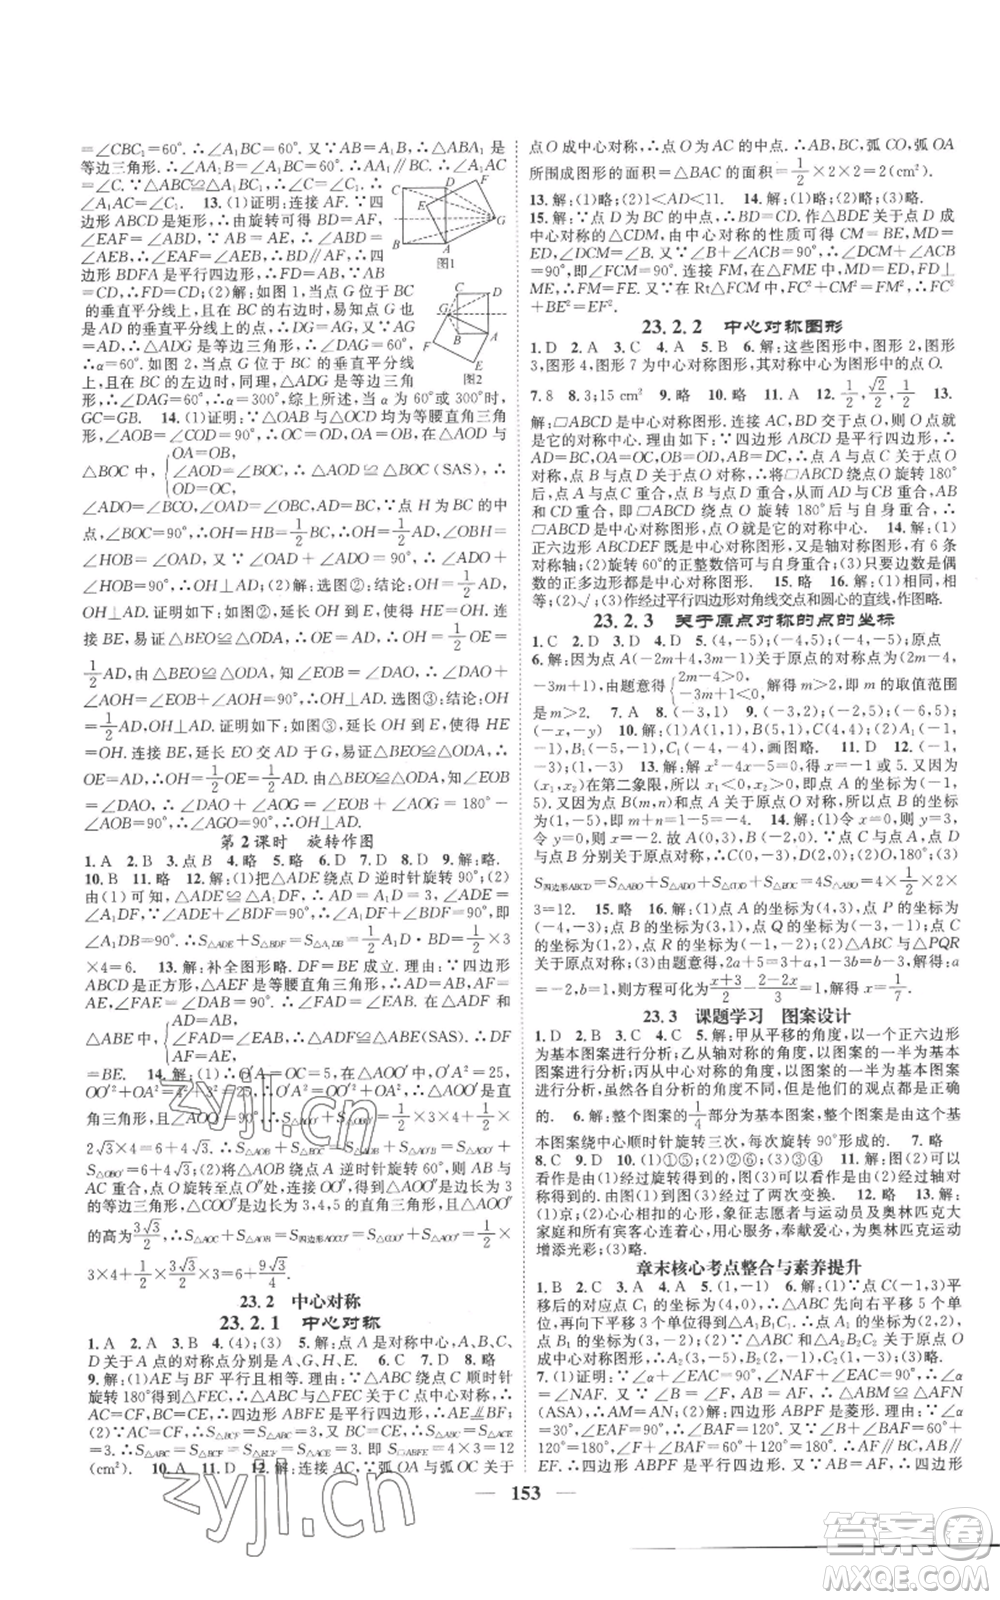 =∠CBC₁=60°.∴∠A₁BC=60°.又∵A₁B=AB,∴△ABA₁是
等边三角形.∴∠AA₁B=∠A₁BC=60°.∴AA₁∥BC.∴∠A₁AC
=∠C.∵△ABC≌△A₁BC₁,∴∠C=∠C₁.
∴∠A₁AC=∠C₁. 13.(1)证明:连接AF.∵四
边形ABCD是矩形,∴由旋转可得BD=AF,
∠EAF=∠ABD.∵AB=AE,∴∠ABD=
∠AEB,∴∠EAF=∠AEB,∴BD∥AF,∴四
边形BDFA是平行四边形;(2)解:如图1,当点G位于BC
的垂直平分线上,且在BC的右边时,∵点G也
是AD的垂直平分线上的点,∴DG=AG.又∵
AG=AD,∴△ADG是等边三角形,∴∠DAG
=60°,∴α=60°.如图2,当点G位于BC的垂直平分线
上,且在BC的左边时,同理,△ADG是等边三角形,
∴∠DAG=60°,∴α=300°,综上所述,当α为60°或300°时,
GC=GB. 14.(1)证明:∵△OAB与△OCD均为等腰直角三角
形,∠AOB=∠COD=90°,∴OC=OD,OA=OB.∵在△AOD与
△BOC中,{OA=OB,∠AOD=∠BOC,OD=OC,∴△AOD≌△BOC(SAS),∴
∠ADO=∠BCO,∠OAD=∠OBC.∵点H为BC的中
点,∠BOC=90°,∴OH=HB=1/2BC,∴OH=1/2AD,∴∠OBH=
∠HOB=∠OAD,又∵∠OAD+∠ADO=90°,∴∠ADO+
∠HOB=90°,∴OH⊥AD;(2)解:选图②:结论:OH=1/2AD,
OH⊥AD.证明如下:如图②,延长OH到E,使得HE=OH,连接
BE,易证△BEO≌△ODA,∴OE=AD,∴OH=1/2OE=
1/2AD.由△BEO≌△ODA,知∠EOB=∠DAO,∴∠DAO+
∠AOH=∠EOB+∠AOH=90°,∴OH⊥AD.选图③:结论:OH=
1/2AD,OH⊥AD.证明如下:如图③,延长OH到E,使得HE=
OH,连接BE,延长EO交AD于G,易证△BEO≌△ODA,∴
OE=AD,∴OH=1/2OE=1/2AD.由△BEO≌△ODA,知∠EOB
=∠DAO,∴∠DAO+∠AOG=∠EOB+∠AOG=
90°,∴∠AGO=90°,∴OH⊥AD.
第2课时 旋转作图
1.A 2.B 3.点B 4.略 5.略 6.D 7.D 8.D 9.解:略.
10.B 11.略 12.解:(1)把△ADE绕点D逆时针旋转90°;(2)
由(1)可知,△ADE≌△A₁DF,∴AD=A₁D=3,∠ADE=
∠A₁DF.∵∠ADE+∠BDF=90°,∴∠A₁DF+∠BDF=90°,即
∠A₁DB=90°,∴S△ADE+S△BDF=S△A₁BD=1/2A₁D·BD=1/2×3
×4=6. 13.解:补全图形略.DF=BE成立.理由:∵四边形
ABCD是正方形,△AEF是等腰直角三角形,∴AD=AB,AF=
AE,∠FAE=∠DAB=90°,∴∠FAD=∠EAB.在△ADF与
△ABE中,{AD=AB,∠FAD=∠EAB,AF=AE,∴△ADF≌△ABE(SAS).∴DF
=BE. 14.解:(1)∵O′A=OC=5,在△AOO′中,O′A²=25,
OO′²+OA²=4²+3²=25,∴O′A²=OO′²+OA²,∴△AOO′为直
角三角形,∴∠AOO′=90°,S四边形AOBO′=1/2×3×4+1/2×4×
2√3=6+4√3,∴S△AOB+S△BOC=S△AOO′+S△OBO′=6+
4√3;(2)将△AOB绕点A逆时针旋转60°,使得AB与
AC重合,点O旋转至点O″处,∴△AOO″是边长为3
的等边三角形,△COO″是边长为3,4,5的直角三角形,且△AOO″
的高为3√3/2,∴S△AOC+S△AOB=S四边形AOCO″=S△COO″+S△AOO″=1/2
×3×4+1/2×3×3√3/2=6+9√3/4.
23.2 中心对称
23.2.1 中心对称
1.A 2.A 3.B 4.(4);(3) 5.解:点A是对称中心,A、B、C、
D关于A点的对称点分别是A、G、H、E. 6.C 7.D 8.略
9.解:(1)AE与BF平行且相等.理由:∵△ABC绕点C顺时针
旋转180°得到△FEC,∴△ABC与△FEC关于点C中心对称,∴
AC=CF,BC=CE,∴四边形ABFE是平行四边形,∴AE∥BF,AE
=BF;(2)∵AC=CF,∴S△BCF=S△ABC=3.∵BC=CE,∴S△ACE=S△ABC
=3.∴S△CEF=S△BCF=3.即S▱ABFE=4×3=12
(cm²) 10.A 11.D 12.解:连接AC.∵弧OA与弧OC关于
点O成中心对称,∴点O为AC的中点.∴AB,BC,弧CO,弧OA
所围成图形的面积=△BAC的面积=1/2×2×2=2(cm²).
13.解:(1)略;(2)1<AD<11. 14.解:(1)略;(2)略;(3)略.
15.解:∵点D为BC的中点,∴BD=DC,作△BDE关于点D成
中心对称的△CDM,由中心对称的性质可得CM=BE,MD=
ED,∠DCM=∠B.又∵∠B+∠ACB=90°,∴∠DCM+∠ACB
=90°,即∠FCM=90°.连接FM,在△FME中,MD=ED,FD⊥
ME,∴FM=FE.又∵在Rt△FCM中,FC²+CM²=FM²,∴FC²
+BE²=EF².
23.2.2 中心对称图形
1.D 2.A 3.C 4.A 5.B 6.解:这些图形中,图形2,图形
3,图形4,图形7为中心对称图形,其对称中心为图形中的点O.
7.8 8.3;15cm² 9.略 10.略 11.A 12.1/2,√2/2,1/2 13.
解:▱ABCD是中心对称图形.连接AC、BD交于点O,则点O就
是它的对称中心.理由如下:∵四边形ABCD是平行四边形,∴
AD=BC,AB=CD,OA=OC,OB=OD,∴点A与点C关于点O
对称,点B与点D关于点O对称,∴将▱ABCD绕点O旋转180°
后,点A与点C重合,点B与点D重合,AD和CB重合,AB
和CD重合,即▱ABCD绕点O旋转180°后与自身重合,∴
▱ABCD是中心对称图形,点O就是它的对称中心. 14.解:(1)
正六边形ABCDEF既是中心对称图形,又是轴对称图形,有6条
对称轴;(2)旋转60°的正整数倍均可与自身重合;(3)边数是偶
数的正多边形都是中心对称图形. 15.略 16.解:(1)×;√;×;
√;(2)√;(3)作经过平行四边形对角线交点和圆心的直线,作图略.
23.2.3 关于原点对称的点的坐标
1.C 2.C 3.D 4.D 5.(4,-5);(-4,5);原点
6.解:因为点A(-2m+4,3m-1)关于原点的对称点为(2m-4,
-3m+1),由题意得{2m-4>0,-3m+1<0,解得m>2,即m的取值范围
是m>2. 7.A 8.(-3,1) 9.(-5,2);(5,-2);(-6,5);
(-x,-y) 10.解:(1)A(1,5),B(5,2),C(4,4);(2)A₁(-1,
-5),B₁(-5,-2),C₁(-4,-4),画图略. 11.D 12.(-
1/2,-1) 13.解:解x²-4x-5=0,得x=-1或5.又因为点
(x₁,x₂)在第二象限,所以x₁<0,x₂>0,所以点A的坐标为
(-1,5).因为点B(m,n)和点A关于原点对称,所以点B的坐标为
(1,-5).所以m+n=1-5=-4. 14.解:(1)∵点A的坐标是
(0,2),点B的坐标是(3,0).∵点C与点A,点D与点
B分别关于原点对称,∴C(0,-2),D(-3,0);(2)O,180°;(3)
S四边形ABCD=S△AOB+S△BOC+S△COD+S△AOD=4S△AOB=4×1/2×2×
3=12. 15.略 16.解:(1)点A的坐标为(4,3),点P的坐标为
(-4,-3);点B的坐标为(3,1),点Q的坐标为(-3,-1);点C的
坐标为(1,2),点R的坐标为(-1,-2);(2)△ABC与△PQR
关于原点对称;(3)由题意得,2a+2=-a-1,3-b+b+3=0,解得a
=-1,则方程可化为(x+3)/2-(2-2x)/3=1,解得x=1/7.
23.3 课题学习 图案设计
1.D 2.B 3.C 4.C 5.解:甲从平移的角度,以一个正六边形
为基本图案进行分析;乙从轴对称的角度,以图案的一半为基本
图案进行分析;丙从中心对称的角度,以图案的一半为基本图案
进行分析,虽然各自分析的角度不一样,但是他们的观点都是正确
的. 6.解:整个图案的1/4部分为基本图案,整个图案是由这个
基本图案绕中心顺时针旋转三次,每次旋转90°形成的. 7.略
8.C 9.D 10.(1)①⑤;(2)②⑥;③④ 11.解:图(2)可以看
作是由图(1)绕右下角顶点顺时针旋转180°得到的,图(3)是轴
对称得到的.由图(1)到图(3)经过了两次变换. 12.略 13.解:
(1)京;(2)两颗相对的心形,象征志愿者与运动员及奥林匹克大
家庭和所有宾客心连着心,用心服务,奉献爱心,为奥林匹克运动
增添光彩;(3)略.
章末核心考点整合与素养提升
1.B 2.C 3.A 4.A 5.(1,-1) 6.解:(1)∵点C(-1,3)平
移后的对应点C₁的坐标为(4,0),∴△ABC先向右平移5个单
位,再向下平移3个单位得到△A₁B₁C₁,∴点A₁的坐标为(2,2),
点B₁的坐标为(3,-2);(2)∵△ABC和△A₂B₂C₂关于原点O
成中心对称图形,∴A₂(3,-5),B₂(2,-1),C₂(1,-3);(3)略.
7.(1)证明:∵∠α+∠EAC=90°,∠NAF+∠EAC=90°,∴∠α
=∠NAF.又∵∠B=∠F,AB=AF,∴△ABM≌△AFN
(ASA),∴AM=AN;(2)解:四边形ABPF是菱形.理由:∵∠α=
30°,∠EAF=90°,∴∠BAF=120°.又∵∠B=∠F=60°,∴∠B
+∠BAF=60°+120°=180°,∠F+∠BAF=60°+120°=
180°,∴AF∥BC,AB∥EF,∴四边形ABPF是平行四边形.
图1
图2
153
zyjl.cn
zyjl.cn
答案圈
MXQE.COM